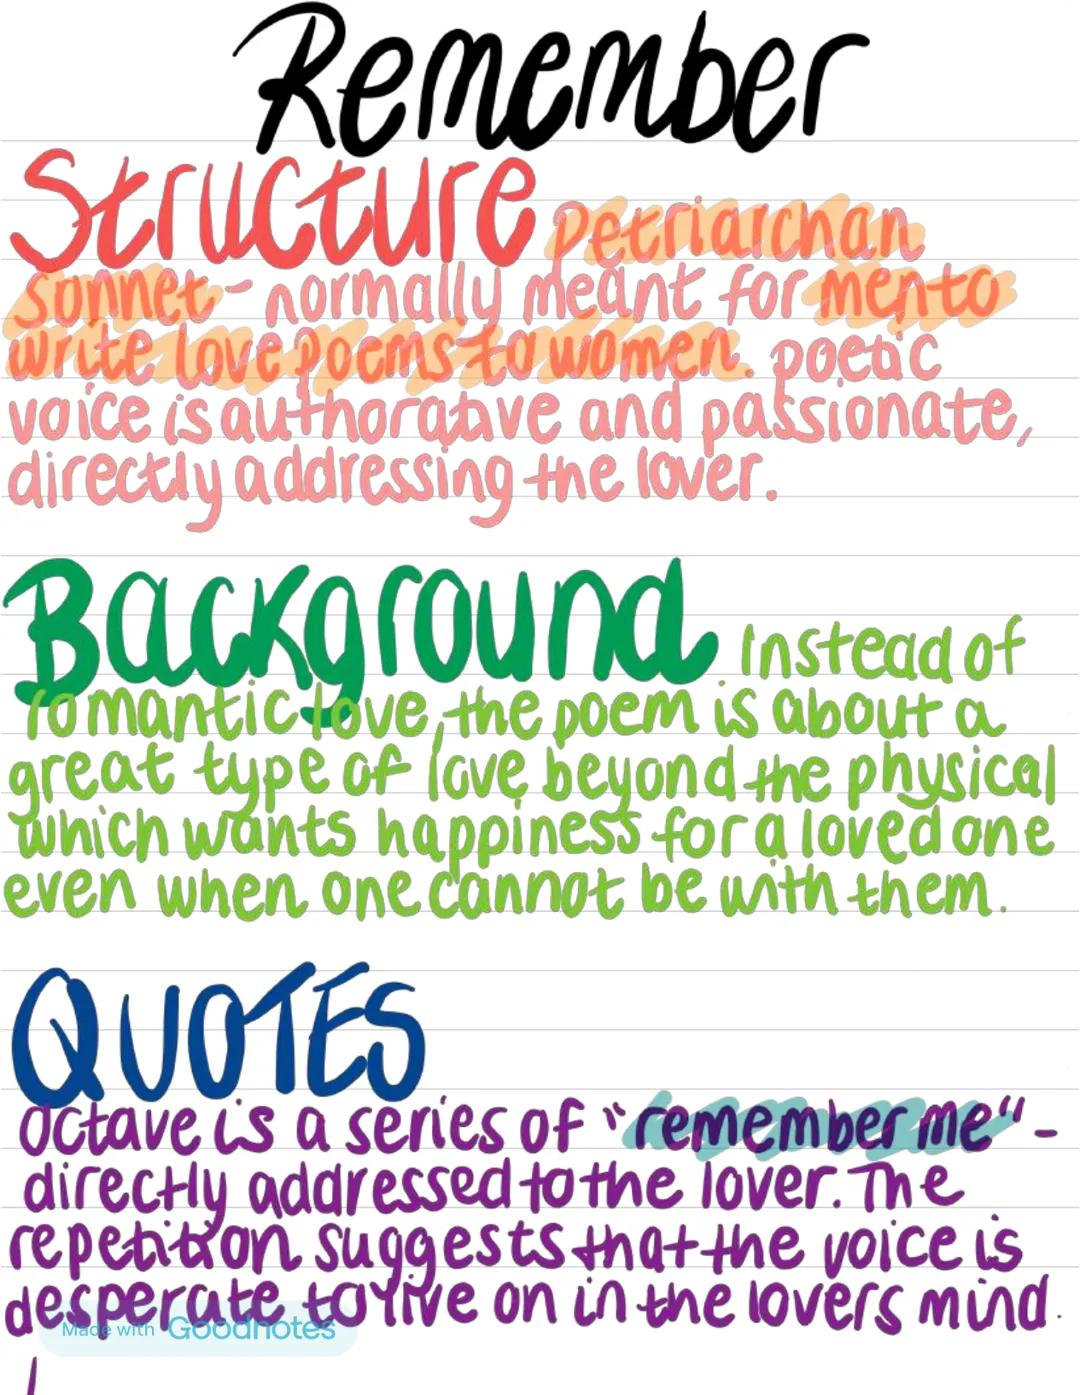 Remember
Structure Petriarchan
sonnet - normally meant for men to
write love poems to women. poetic
voice is authorative and passionate,
directly addressing the lover.
Background Instead of
romantic love, the poem is about a
great type of love beyond the physical
which wants happiness for a loved one
even when one cannot be with them.
QUOTES
Octave is a series of "remember me" -
directly addressed to the lover. The
repetition suggests that the voice is
desperate to live on in the lovers mind.
Made with Goodnotes